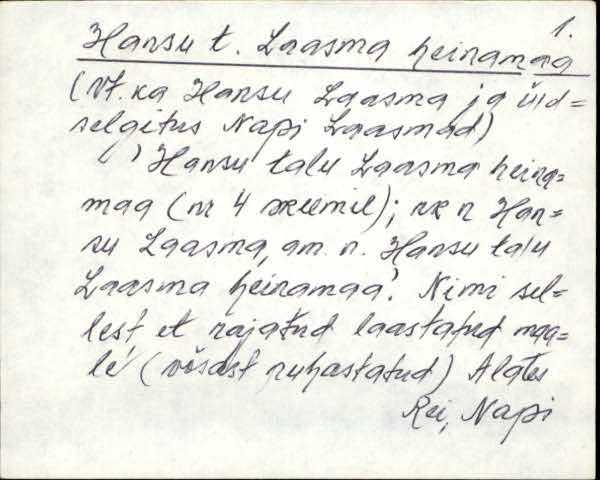 1.
Hansu t. Laasma heinamaa
(Vt. ka Hansu Laasma ja üld=
selgitus Napi Laasmad)
Hansu talu Laasma heina=
maa (nr 4 skeemil); rk n Han=
su Laasma, am. n. Hansu talu
Laasma heinamaa. Nimi sel=
lest et rajatud laastatud maa=
le (võsast puhastatud) Alates
Rei, Napi